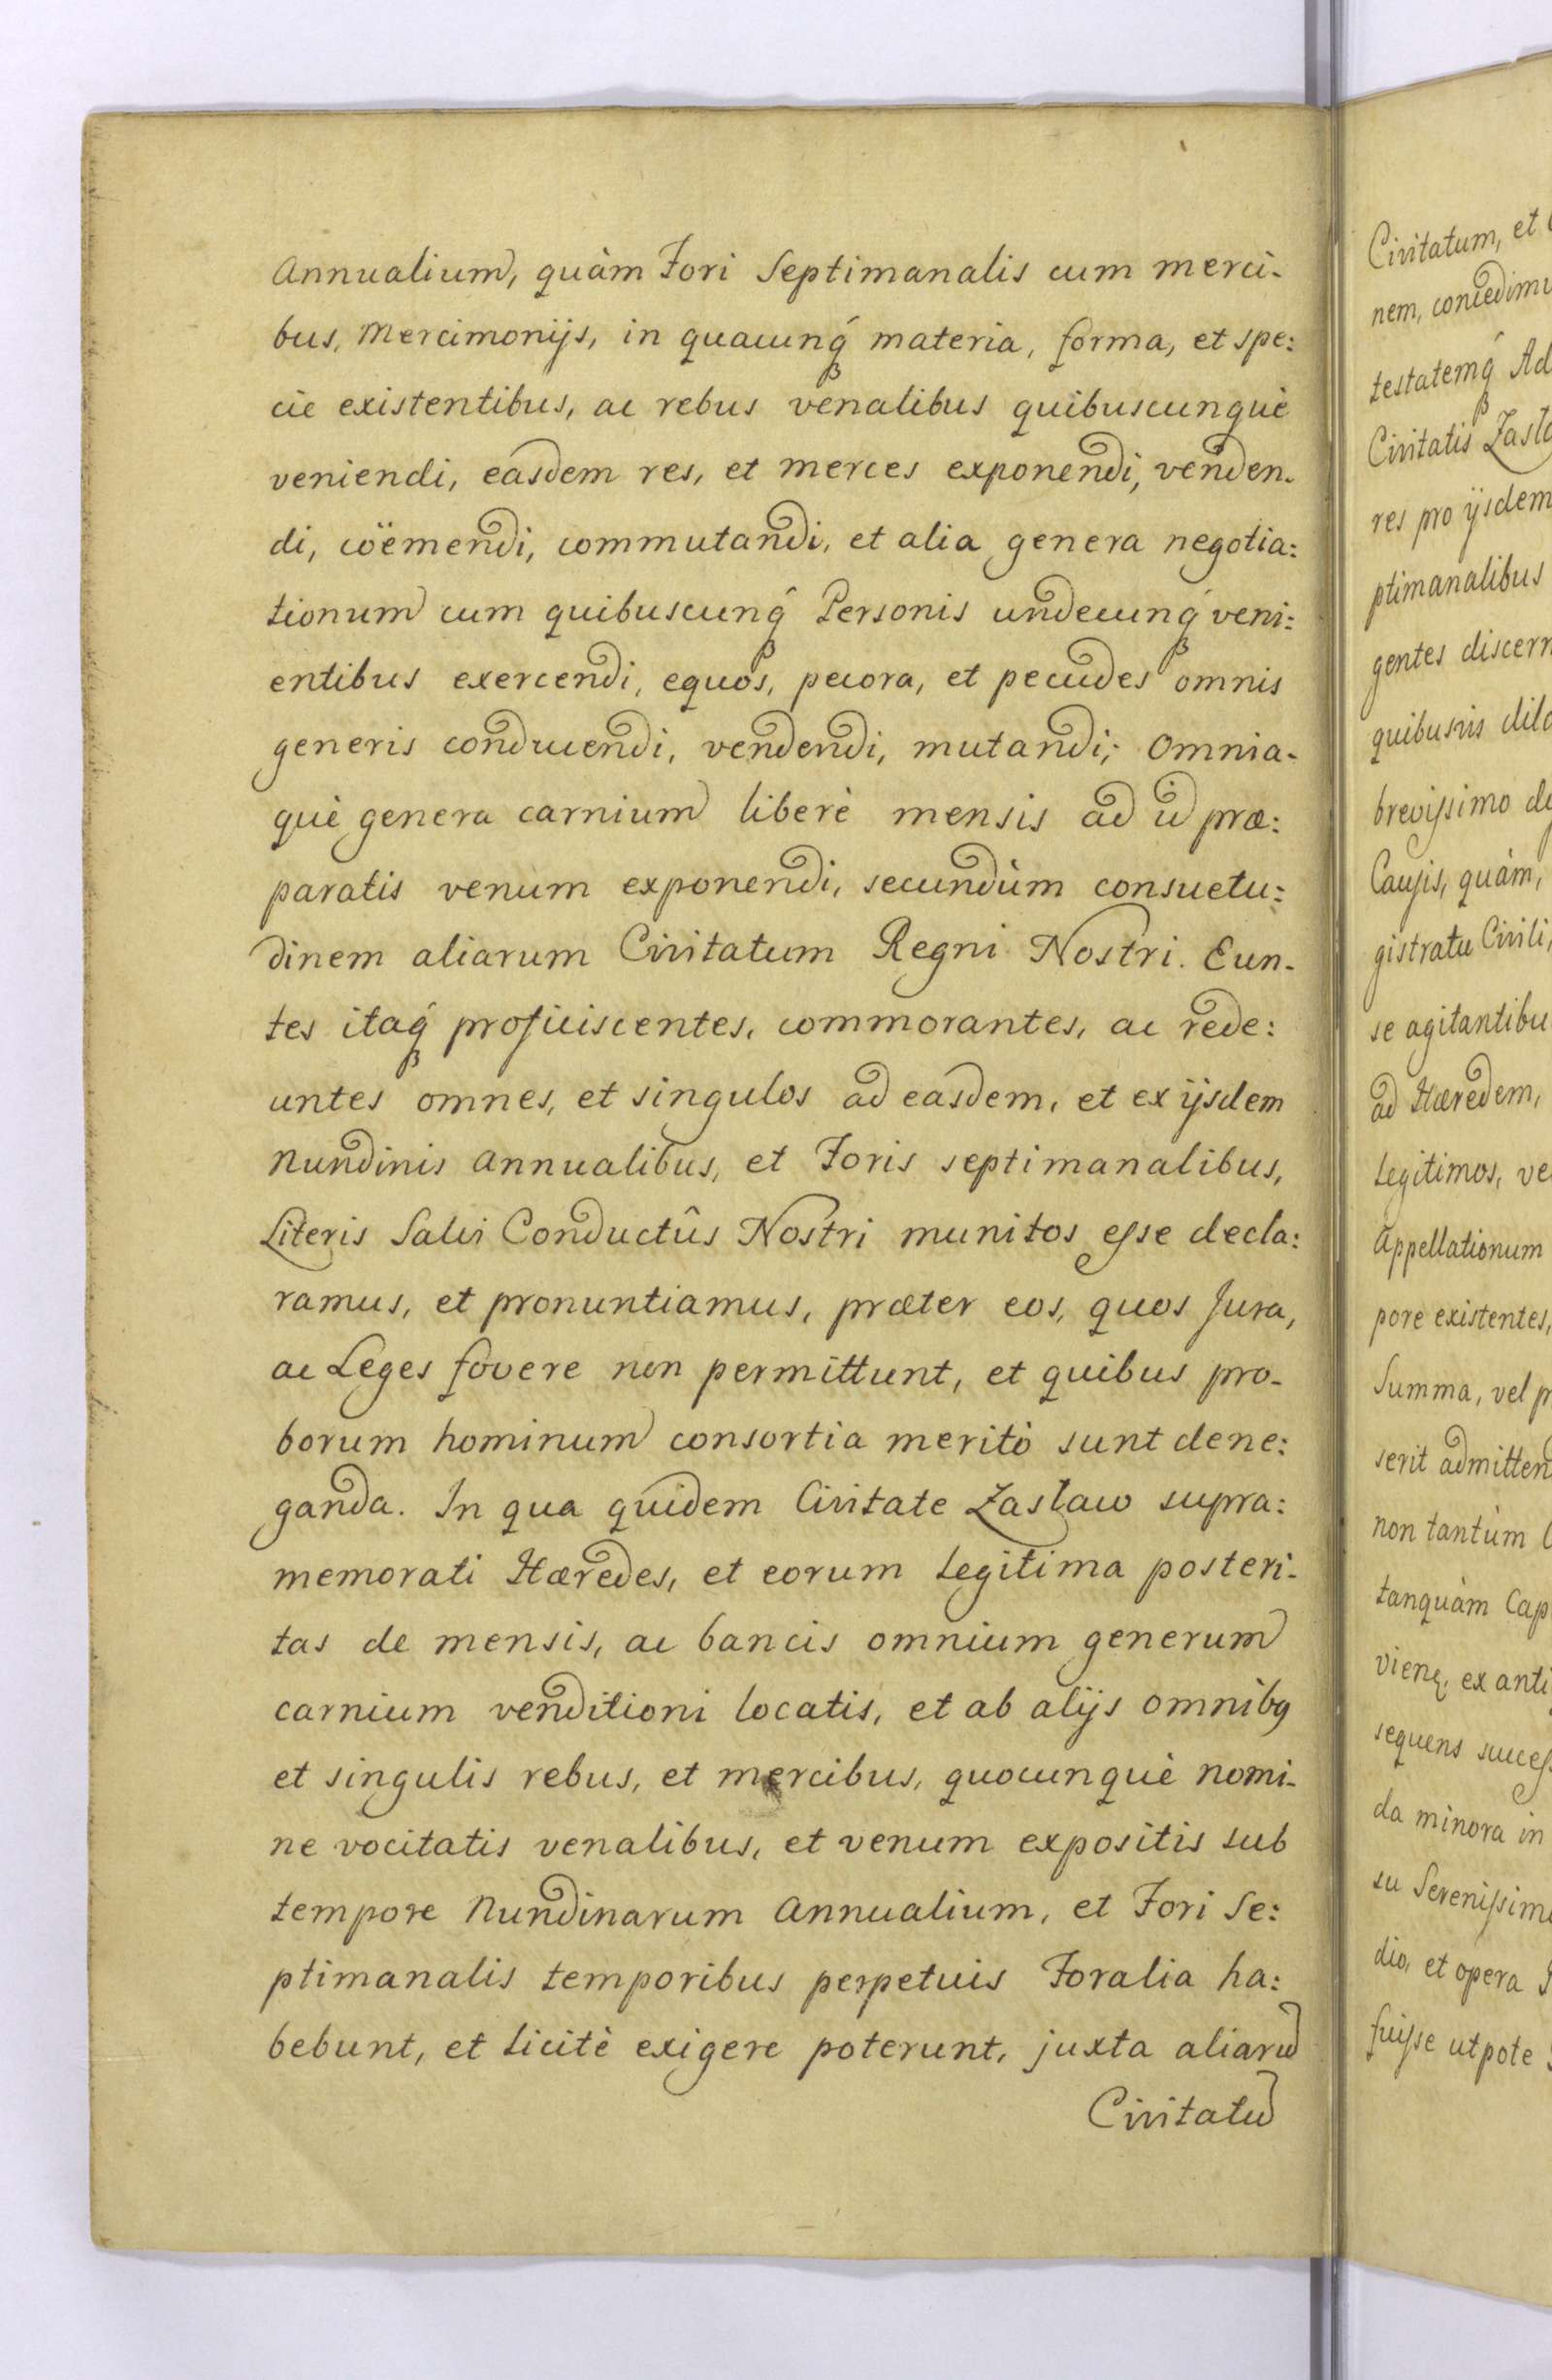 Annualium, quàm Fori Septimanalis cum merci-
bus, Mercimonijs, in quacunq́ materia, forma, et spe:
cie existentibus, ac rebus venalibus quibuscunquè
veniendi, easdem res, et merces exponendi, venden-
di, coëmendi, commutandi, et alia genera negotia:
tionum cum quibuscunq́ Personis undecunq́ veni:
entibus exercendi, equos, pecora, et pecudes omnis
generis conducendi, vendendi, mutandi; Omnia-
què genera carnium liberè mensis ad id præ:
paratis venum exponendi, secundùm consuetu:
dinem aliarum Civitatum Regni Nostri. Eun-
tes itaq́ proficiscentes, commorantes, ac rede:
untes omnes, et singulos ad easdem, et ex ijsdem
Nundinis Annualibus, et Foris septimanalibus,
Literis Salvi Conductûs Nostri munitos esse decla:
ramus, et pronuntiamus, præter eos, quos Jura,
ac Leges fovere non permittunt, et quibus pro-
borum hominum consortia meritò sunt dene:
ganda. In qua quidem Civitate Zasław supra:
memorati Hæredes, et eorum Legitima posteri-
tas de mensis, ac bancis omnium generum
carnium venditioni locatis, et ab alijs omnibꝯ
et singulis rebus, et mercibus, quocunquè nomi-
ne vocitatis venalibus, et venum expositis sub
tempore Nundinarum Annualium, et Fori Se:
ptimanalis temporibus perpetuis Foralia ha:
bebunt, et licitè exigere poterunt, juxta aliarū
Civitatū
Civitatum, et
nem, concedimu
testatemq́ Ad
Civitatis Zasła
res pro ijsdem
ptimanalibus
gentes discern
quibusvis dila
brevissimo de
Causis, quàm,
gistratu Civili,
se agitantibu
ad Hæredem,
Legitimos, ve
Appellationum
pore existentes,
Summa, vel p
serit admitten
non tantùm
tanquàm Cap
vienę, ex anti
sequens succes
da minora in
su Serenissim
dio, et opera
fuisse utpote